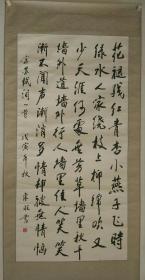 花褪残红青杏小燕子飞時
绿水人家绕枝上柳绵吹又
少天涯何处无芳草墙里秋千
墙外道墙外行人墙里佳人笑笑
渐不闻声渐消多情却被无情恼
苏轼词一首 戊寅年秋